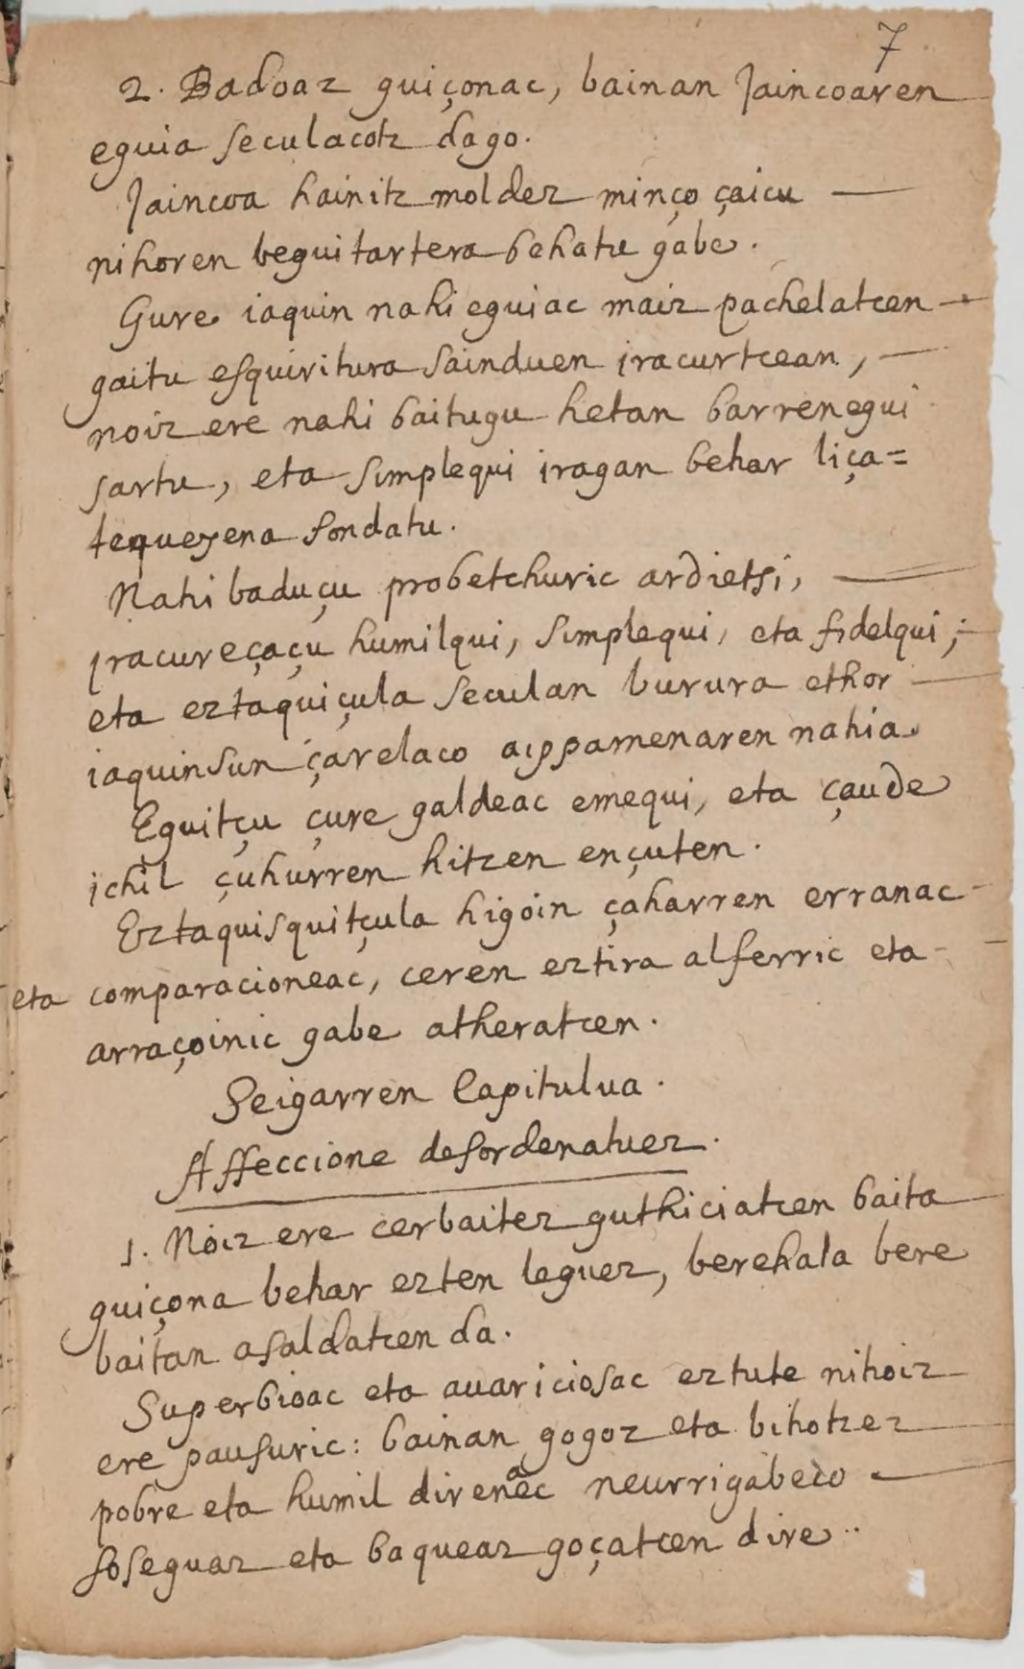 7
2. Badoaz guiçonac, bainan Jaincoaren
eguia seculacotz dago.
Jaincoa hainitz moldez minço çaicu —
nihoren beguitartera behatu gabe.
Gure iaquin nahi eguiac maiz pachelatcen —
gaitu esquiritura sainduen iracurtcean, —
noiz ere nahi baitugu hetan barrenegui
sartu, eta simplequi iragan behar liça=
tequeyena sondatu.
Nahi baduçu probetchuric ardietsi, —
iracureçaçu humilqui, simplequi, eta fidelqui;
eta eztaquiçula seculan burura ethor —
iaquinsun çarelaco aippamenaren nahia
Eguitçu çure galdeac emequi, eta çaude
ichil çuhurren hitzen ençuten.
Eztaquisquitçula higoin çaharren erranac
eta comparacioneac, ceren eztira alferric eta
arraçoinic gabe atheratcen.
Seigarren Capitulua.
Affeccione desordenatuez.
1. Noiz ere cerbaitez guthiciatcen baita
guiçona behar ezten leguez, berehala bere
baitan asaldatcen da.
Superbioac eta auariciosac eztute nihoiz
ere pausuric: bainan gogoz eta bihotzez
pobre eta humil direnac neurrigabeco —
soseguaz eta baqueaz goçatcen dire.